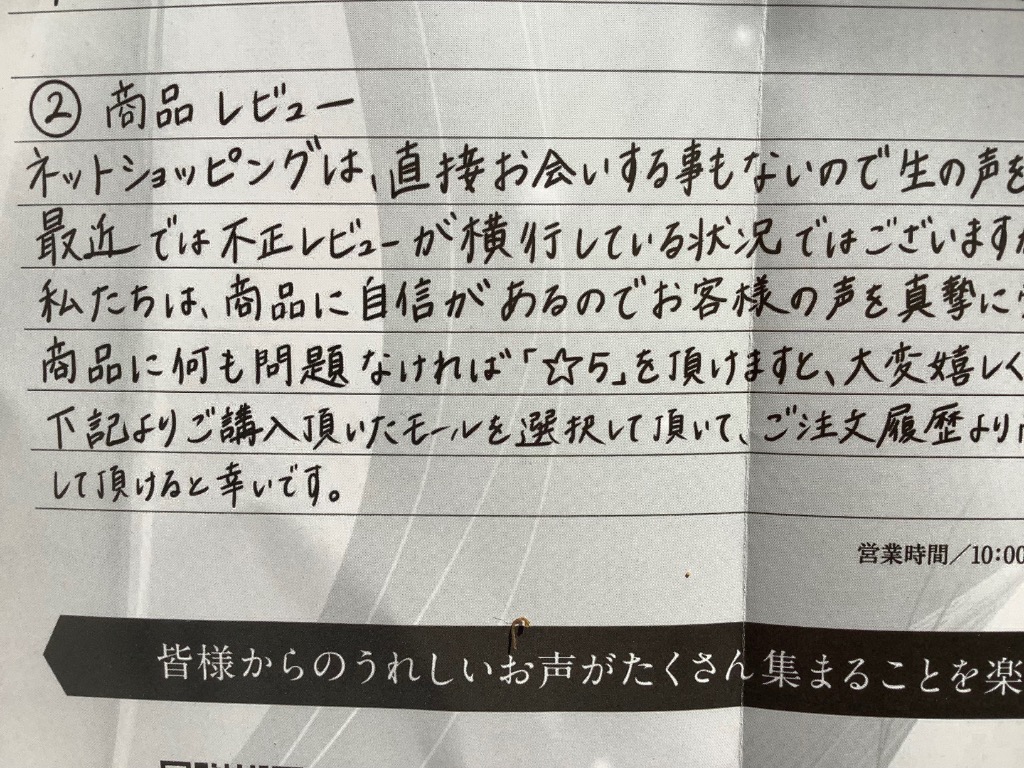 ② 商品レビュー
ネットショッピングは、直接お会いする事もないので生の声を
最近では不正レビューが横行している状況ではございますが
私たちは、商品に自信があるのでお客様の声を真摯に
商品に何も問題なければ「☆5」を頂けますと、大変嬉しく
下記よりご講入頂いたモールを選択して頂いて、ご注文履歴より
して頂けると幸いです。
営業時間/10:00
皆様からのうれしいお声がたくさん集まることを楽